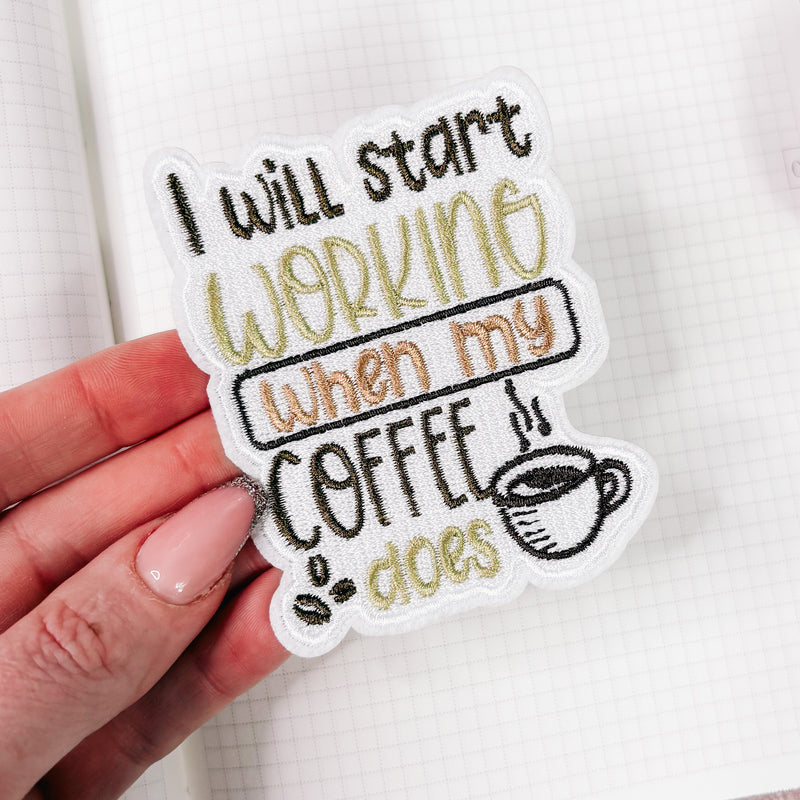 I will start
WORKING
when my
COFFEE
does